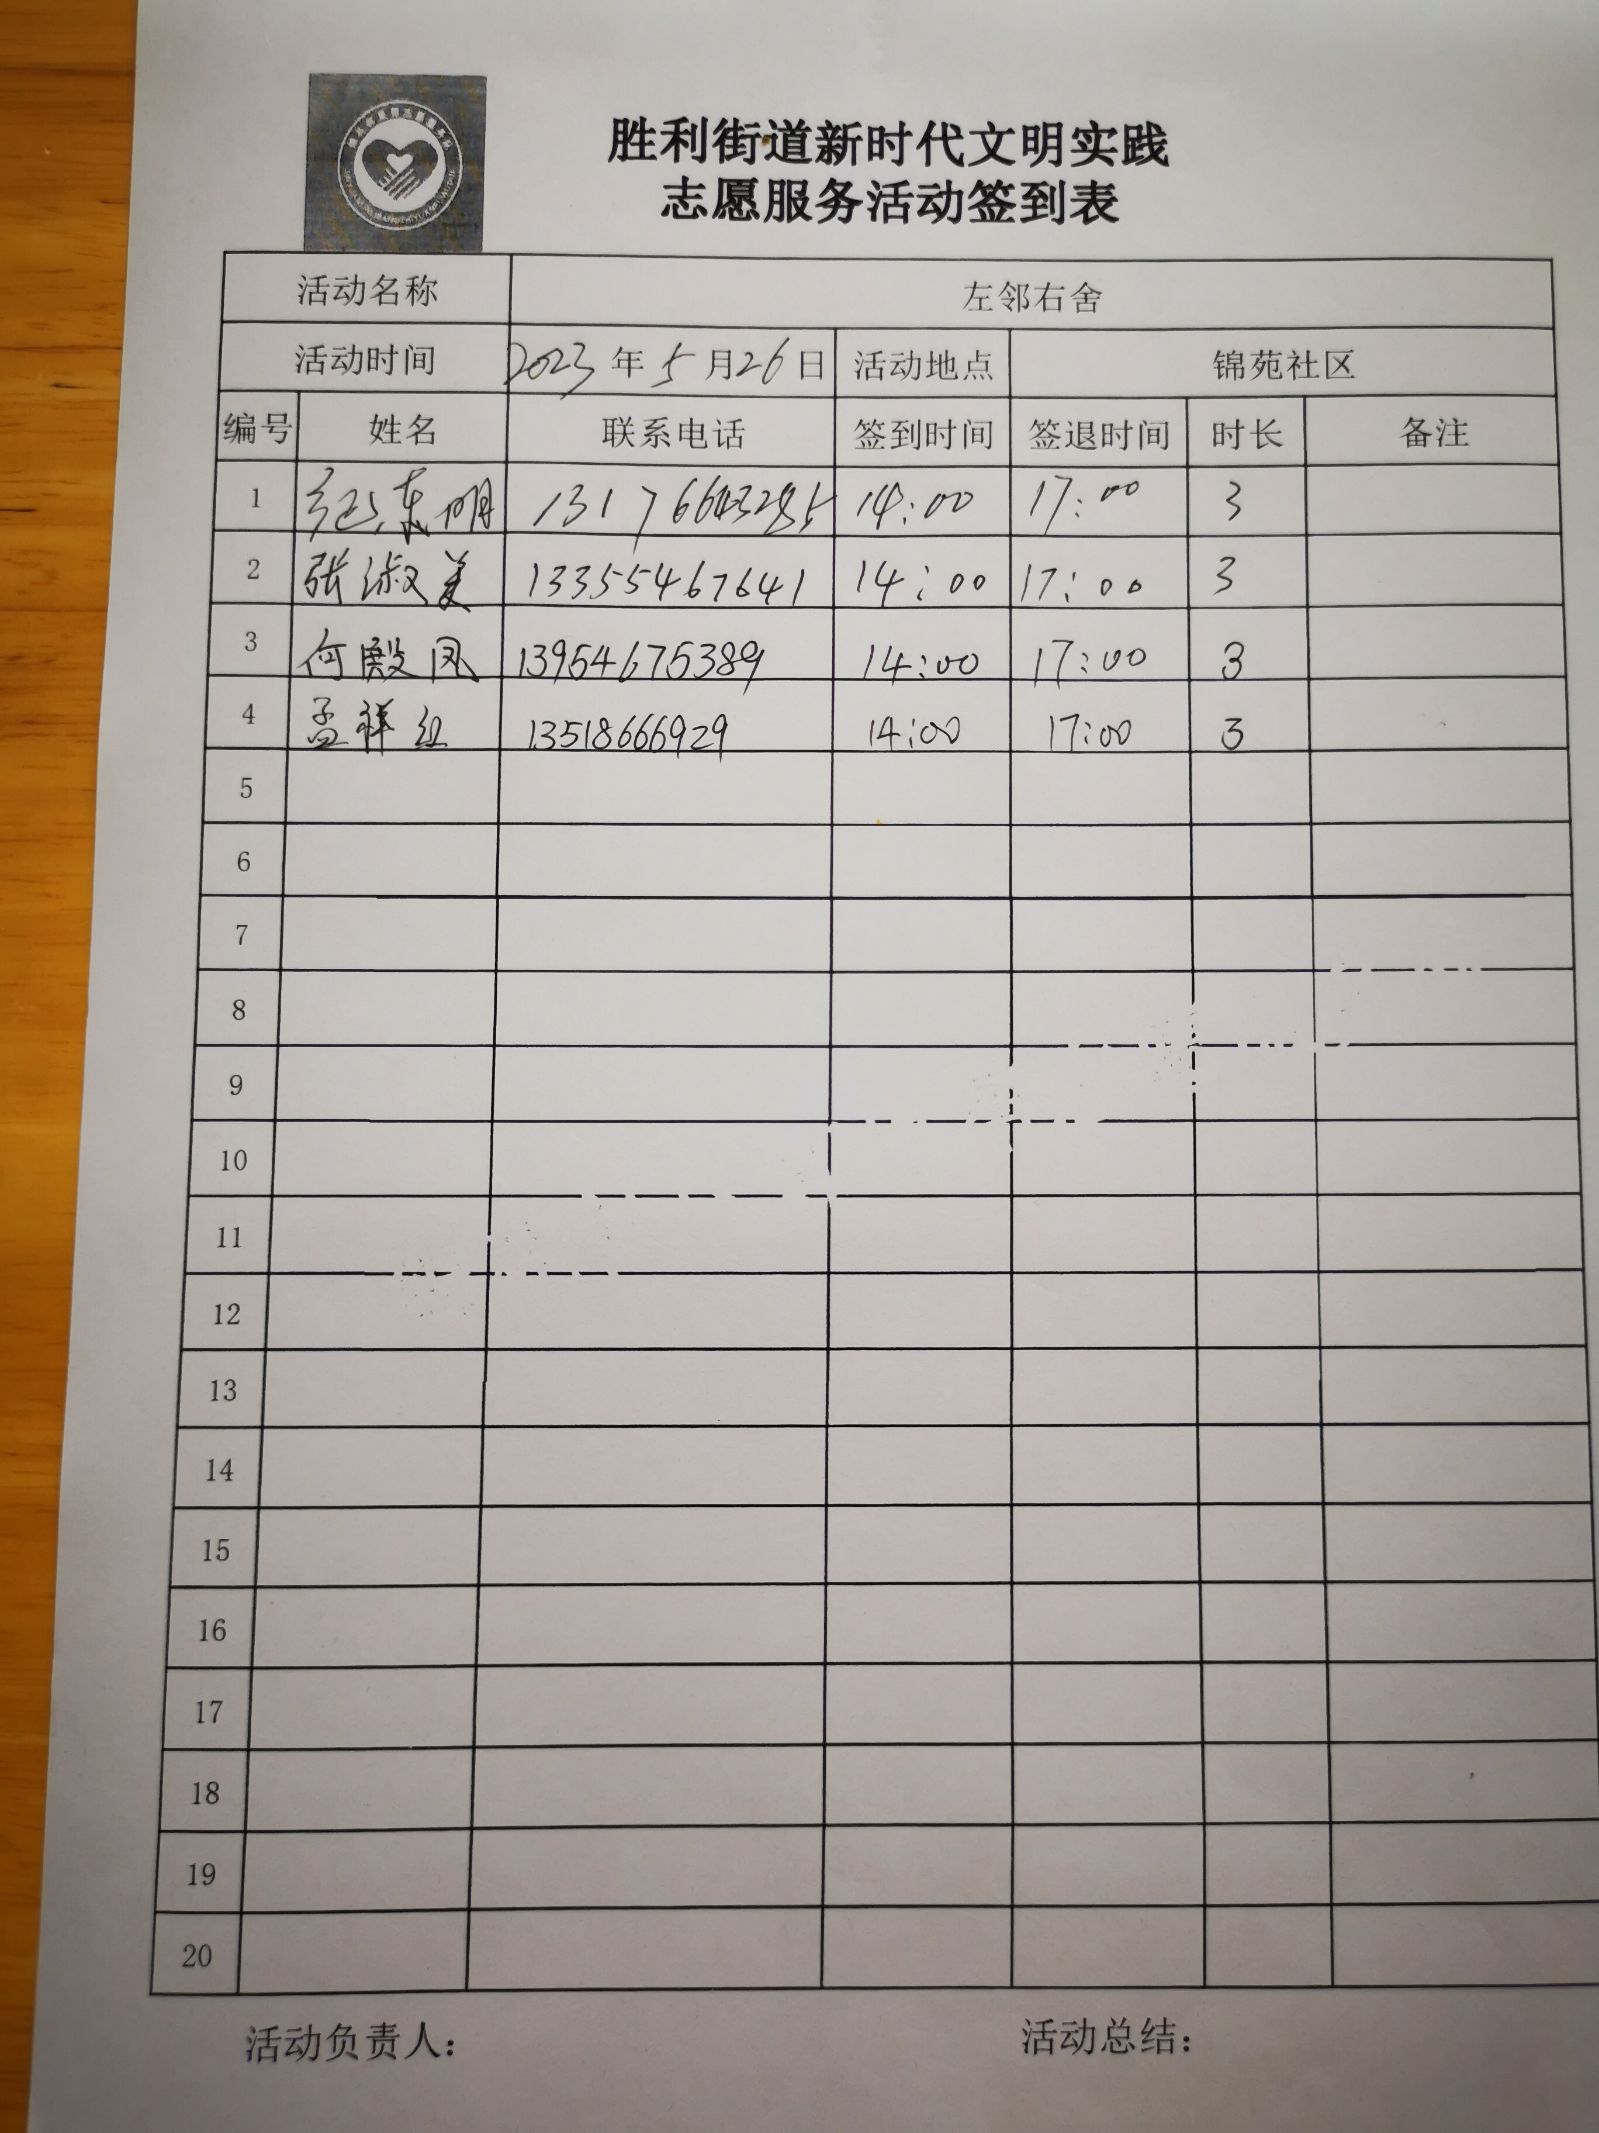 胜利街道新时代文明实践
志愿服务活动签到表
活动名称 左邻右舍
活动时间 2023年5月26日 活动地点 锦苑社区
编号 姓名 联系电话 签到时间 签退时间 时长 备注
1 纪东明 14:00 17:00 3
2 张淑美 13355467641 14:00 17:00 3
3 何殿凤 13954675389 14:00 17:00 3
4 孟祥红 13518666929 14:00 17:00 3
5
6
7
8
9
10
11
12
13
14
15
16
17
18
19
20
活动负责人： 活动总结：